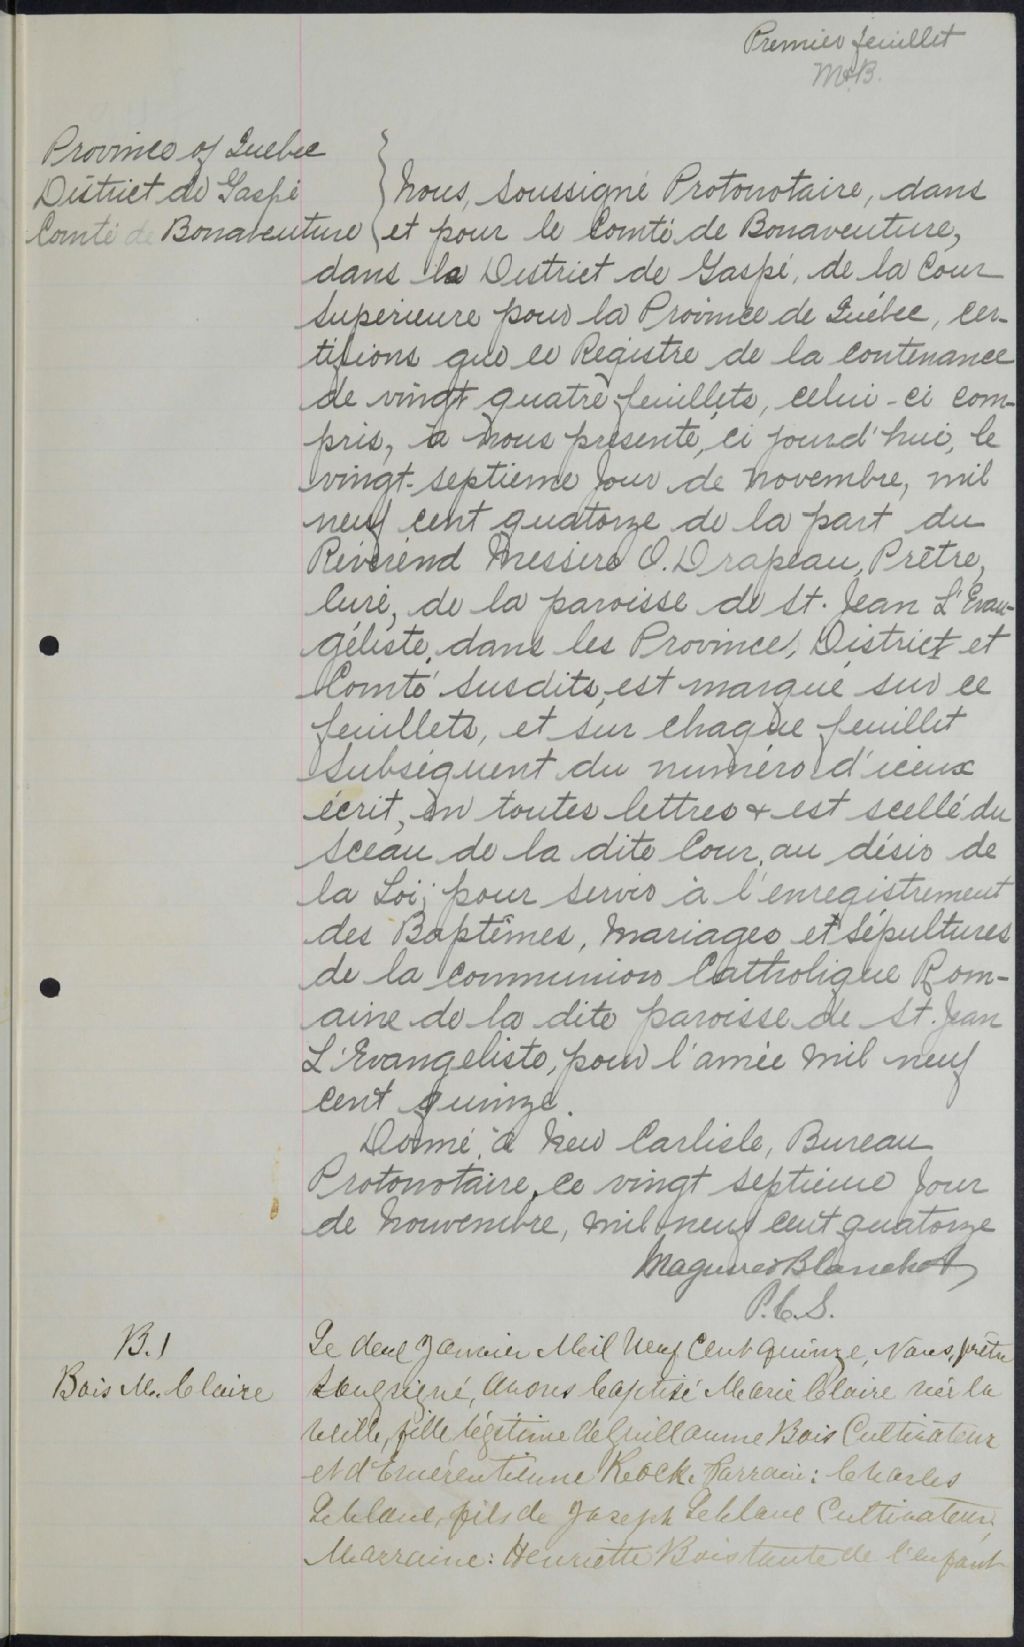 Premier feuillet
M&B.
Province of Quebec
District de Gaspé
Comté de Bonaventure
Nous, soussigné Protonotaire, dans
et pour le Comté de Bonaventure,
dans le District de Gaspé, de la Cour
Superieure pour la Province de Québec, cer-
tifions que ce Registre de la contenance
de vingt quatre feuillets, celui-ci com-
pris, à nous présenté, ci jourd'hui, le
vingt-septieme jour de Novembre, mil
neuf cent quatorze de la part du
Révérend Messire O. Drapeau, Prêtre,
Curé, de la paroisse de St. Jean L'Evan-
géliste, dans les Province, District et
Comté susdits, est marqué sur ce
feuillets, et sur chaque feuillet
subséquent du numéro d'iceux
écrit, en toutes lettres & est scellé du
Sceau de la dite Cour, au désir de
la Loi, pour servir à l'enregistrement
des Baptêmes, Mariages et Sépultures
de la communion Catholique Rom-
aine de la dite paroisse de St. Jean
L'Evangeliste, pour l'année mil neuf
cent quinze.
Donné, à New Carlisle, Bureau
Protonotaire, ce vingt septieme jour
de Nouvembre, mil neuf cent quatorze
P.C.S.
B.1
Bois M. Claire
Le deux Janvier Mil Neuf Cent quinze, Nous, prêtre
Sousigné, Avons baptisé Marie Claire née la
veille, fille légitime de Guillaume Bois Cultivateur
et d'Emérentienne Keock. Parrain: Charles
Leblanc, fils de Joseph Leblanc Cultivateur,
Marraine: Henriette Bois tante de l'enfant